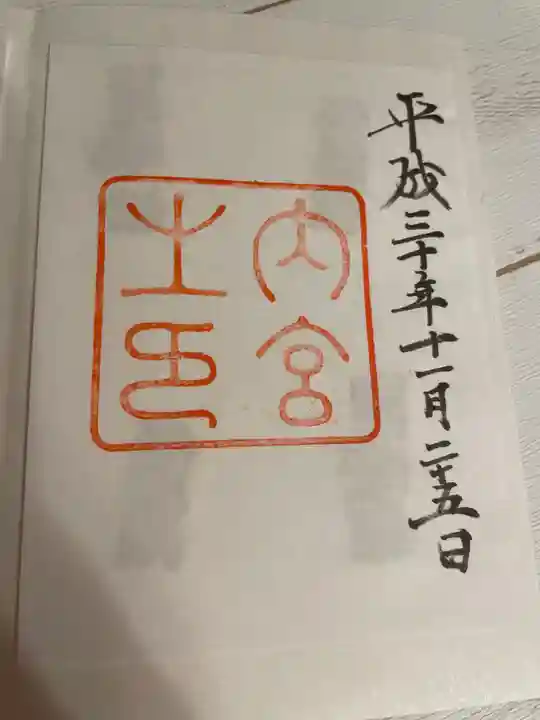 平成三十年十一月二十五日
内宮
之印